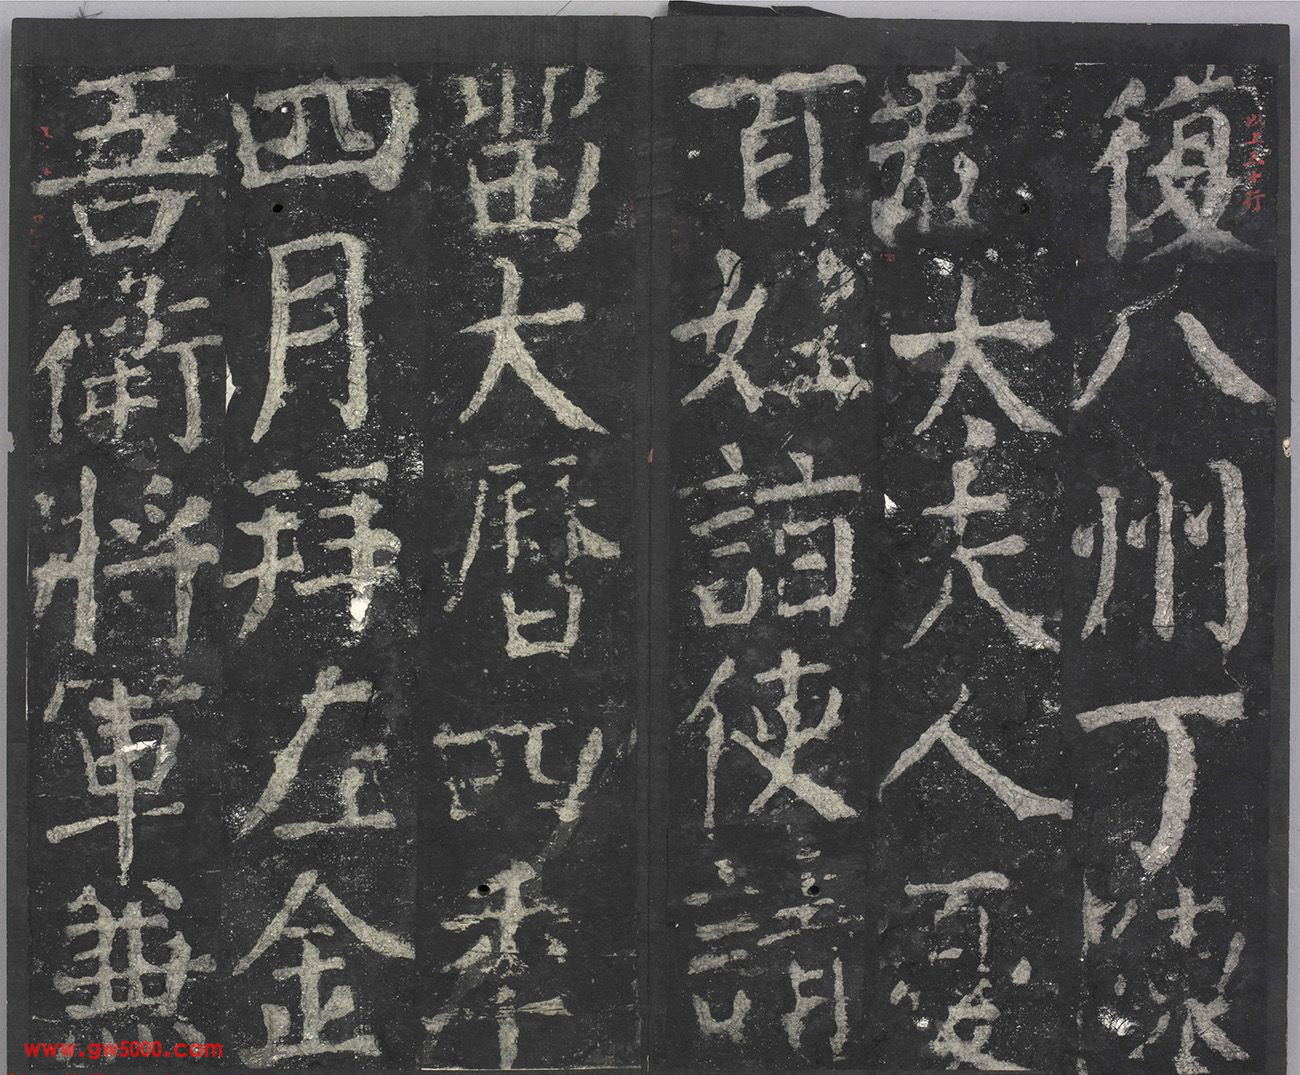 復八州丁陳
郡太夫人憂
百姓詣使請
留大曆四年
四月拜左金
吾衛將軍兼
www.gw5000.com